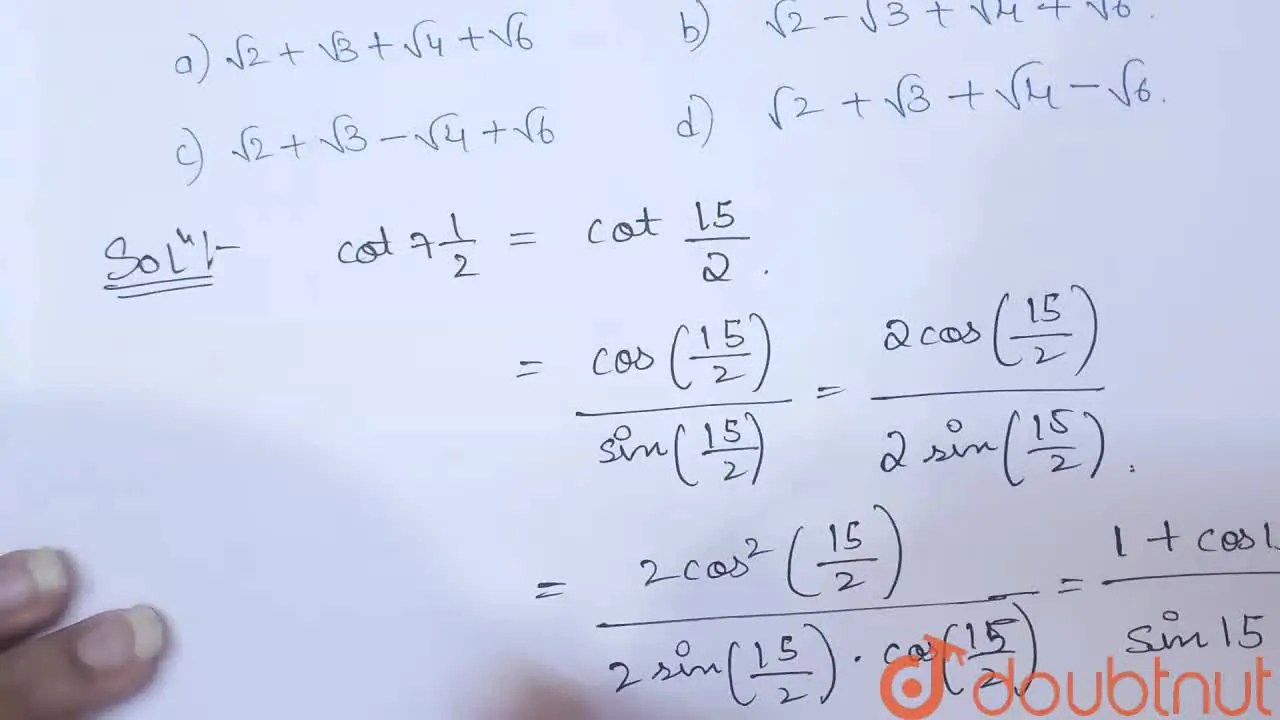 a) √2 + √3 + √4 + √6 b) √2 - √3 + √4 + √6.
c) √2 + √3 - √4 + √6 d) √2 + √3 + √4 - √6.
Solⁿ:- cot 7 1/2 = cot 15/2.
= cos(15/2)/sin(15/2) = 2cos(15/2)/2 sin(15/2).
= 2cos²(15/2)/2 sin(15/2) · cos(15/2) = 1 + cos1/sin 15
doubtnut